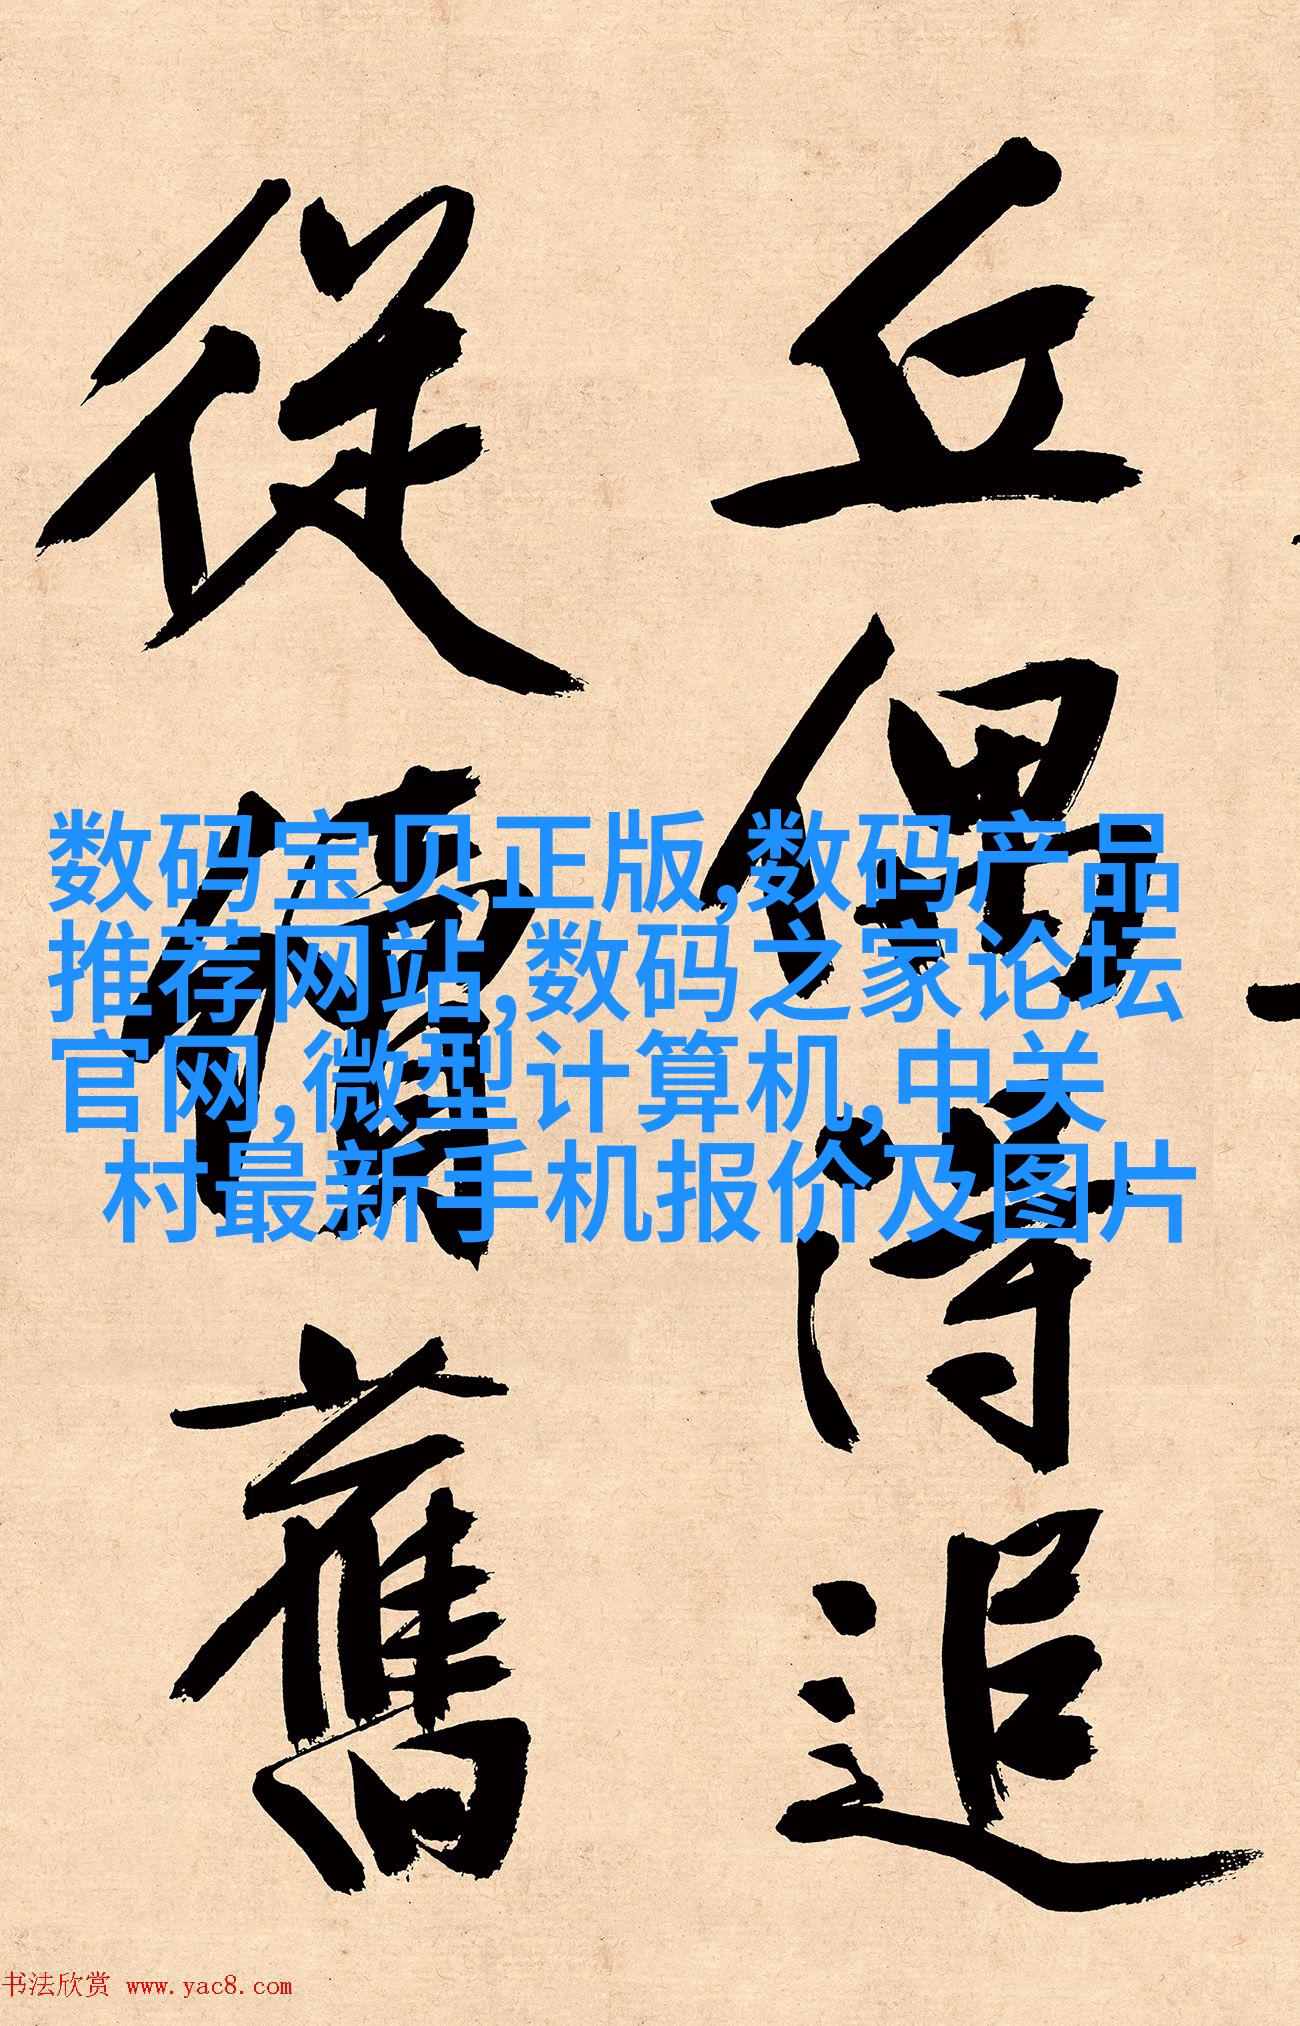 丘俾得追
從償舊
数码宝贝正版,数码产品
推荐网站,数码之家论坛
官网,微型计算机,中关
村最新手机报价及图片
书法欣赏 www.yac8.com